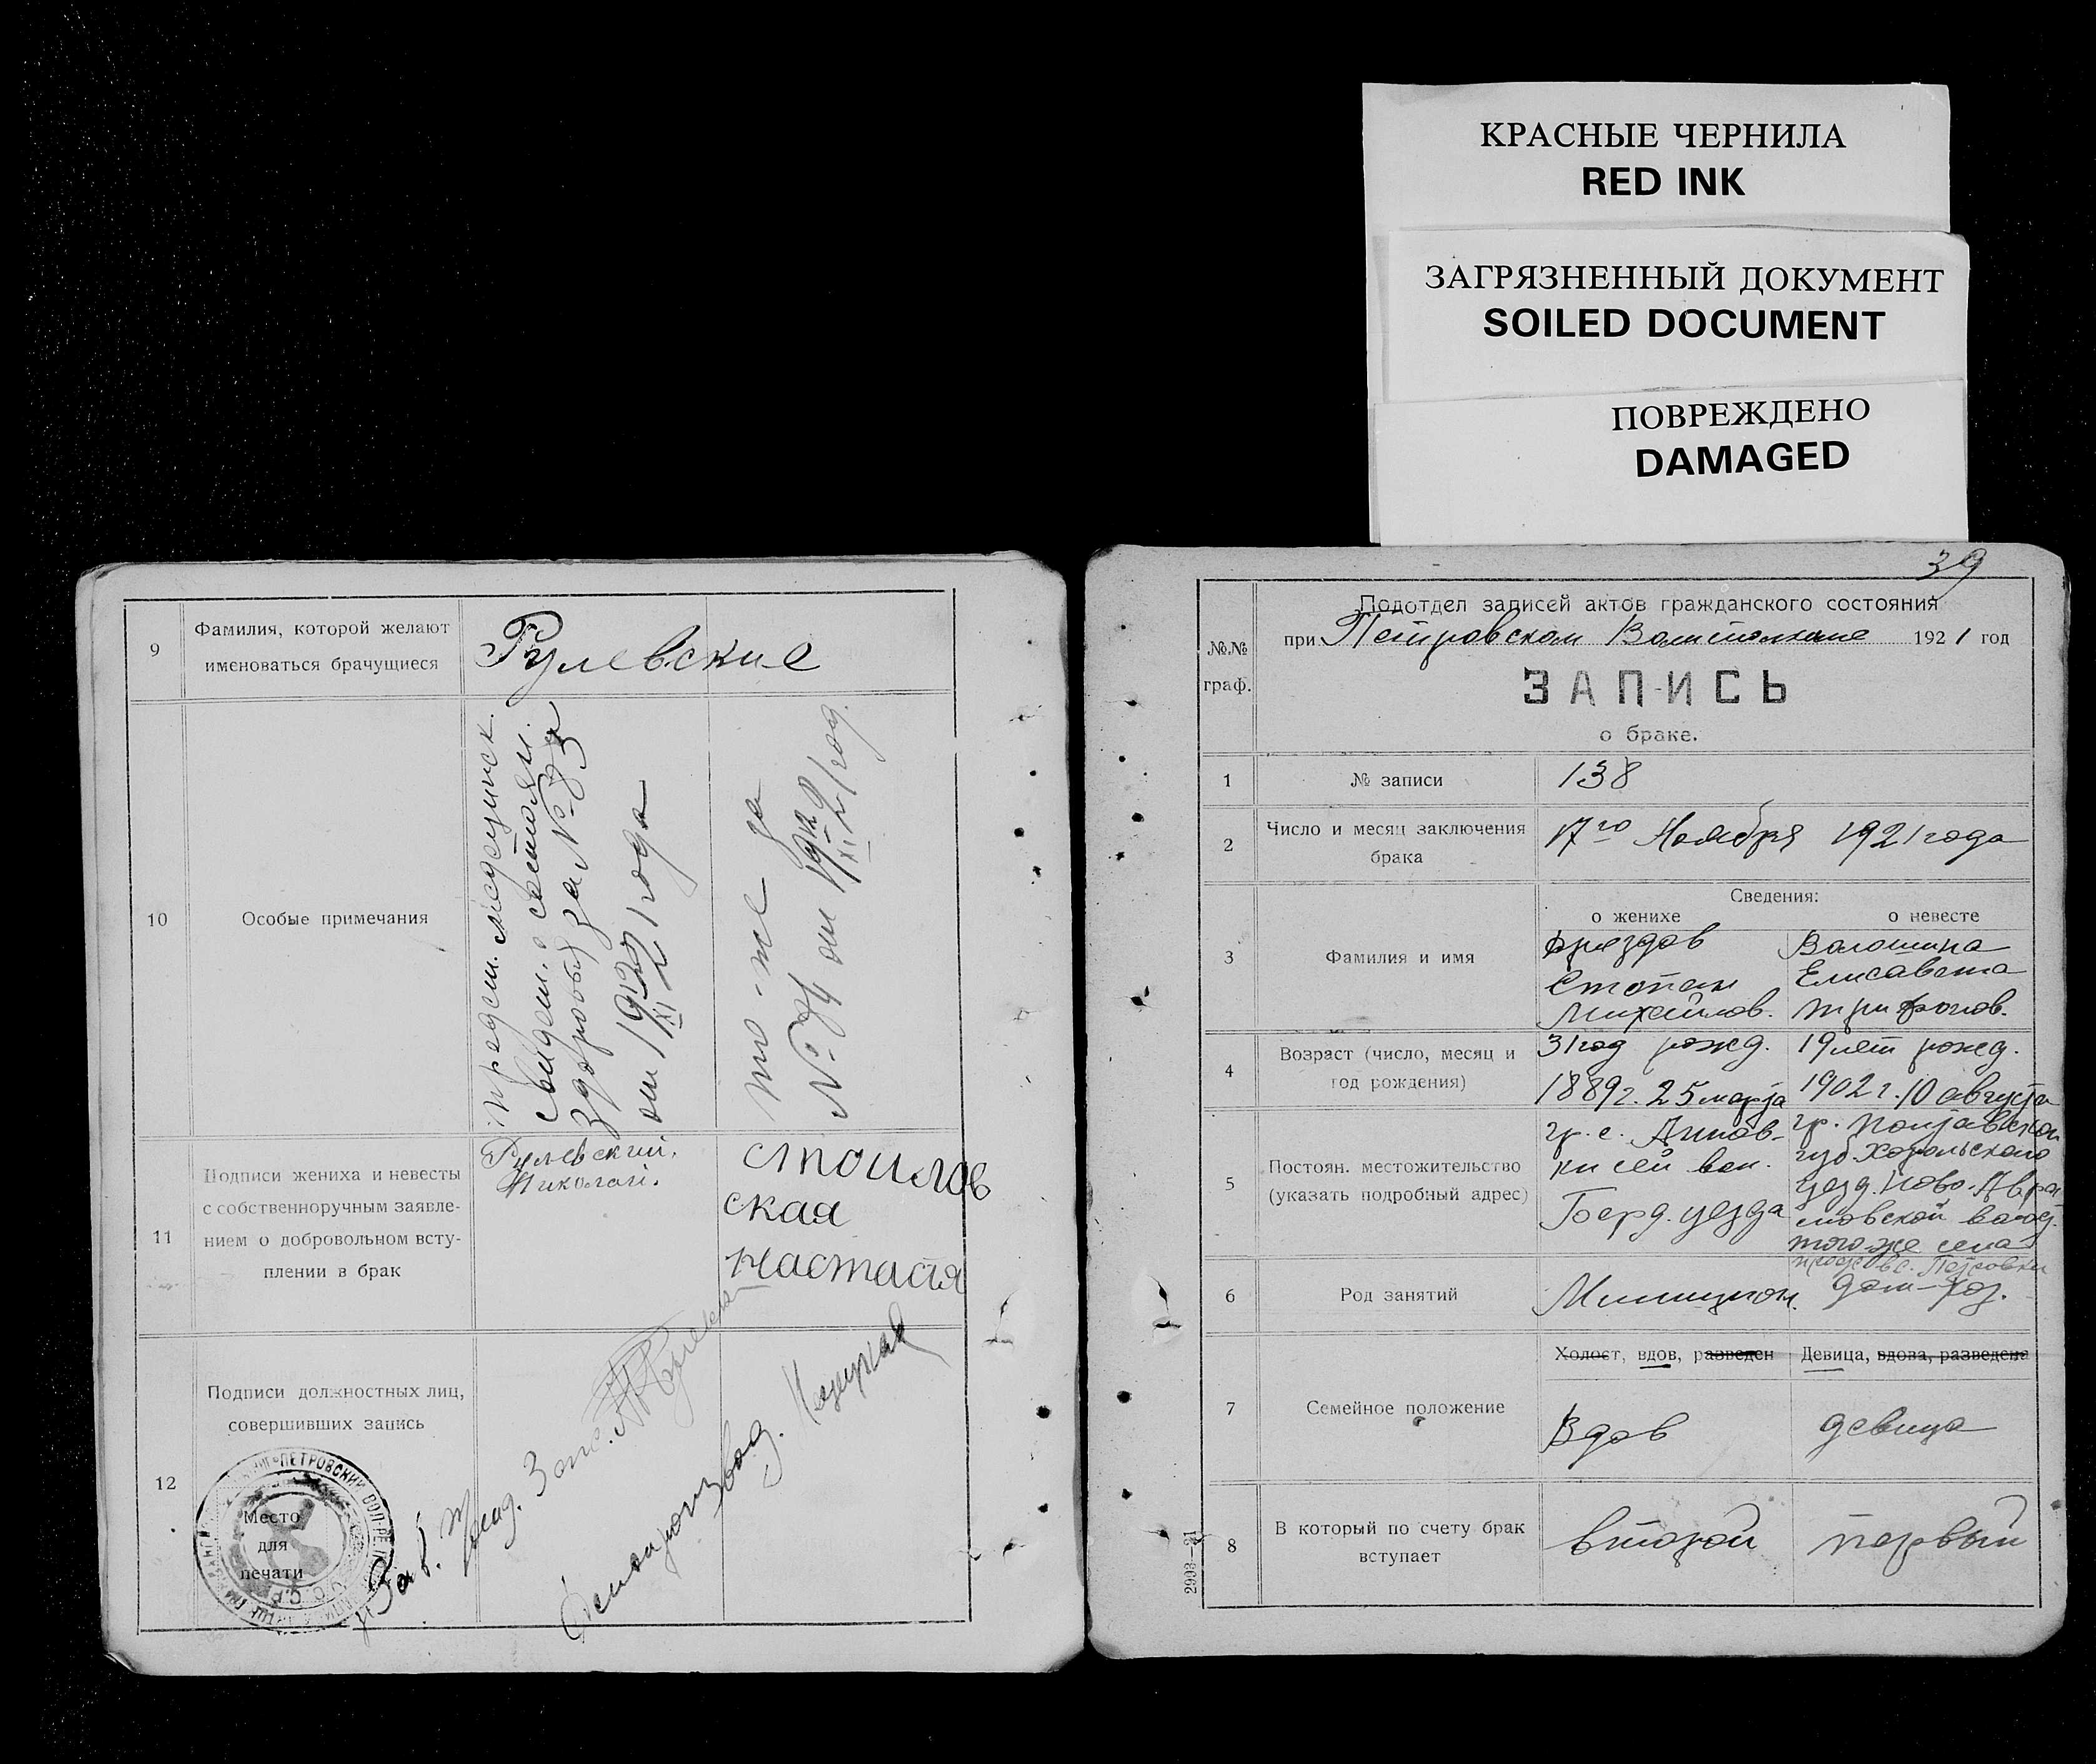 КРАСНЫЕ ЧЕРНИЛА
RED INK
ЗАГРЯЗНЕННЫЙ ДОКУМЕНТ
SOILED DOCUMENT
ПОВРЕЖДЕНО
DAMAGED
9
Фамилия, которой желают
именоваться брачущиеся
Рулевские
10
Особые примечания
предст. медицинск.
свидет. о состоян.
здоровья за № 83
от 19 21 года
XI
то-же за
№ 84 от 19 21 год.
XI
11
Подписи жениха и невесты
с собственноручным заявле-
нием о добровольном всту-
плении в брак
Рулевский,
Николай.
стоилов
ская
настася
12
Подписи должностных лиц,
совершивших запись
Место
для
печати
Зав. Подъотд. Запс.
Делопроизвод.
39
№№
граф.
Подотдел записей актов гражданского состояния
при Петровском Волисполкоме 1921 год
ЗАПИСЬ
о браке.
1
№ записи
138
2
Число и месяц заключения
брака
17го Ноября 1921 года
Сведения:
о женихе
о невесте
3
Фамилия и имя
Дроздов
Степан
Михайлов.
Волошина
Елисавета
Трифонов.
4
Возраст (число, месяц и
год рождения)
31 год рожд.
1889 г. 25 марта
19 лет рожд.
1902 г. 10 августа
5
Постоян. местожительство
(указать подробный адрес)
гр. с.
сей вол.
Берд. уезда
гр. Полтавской
губ. Хорольского
уезд. Ново-Авра
мовской волос.
того-же села
прож. в с. Петровки
6
Род занятий
Милицион.
дом-хоз.
7
Семейное положение
Холост, вдов, разведен
Девица, вдова, разведена
Вдов
девица
8
В который по счету брак
вступает
второй
первый
2993—21